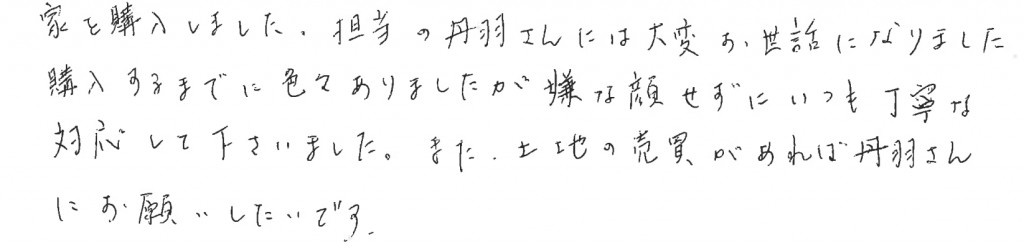 家を購入しました、担当の丹羽さんには大変お世話になりました
購入するまでに色々ありましたが嫌な顔せずにいつも丁寧な
対応して下さいました。また、土地の売買があれば丹羽さん
にお願いしたいです.